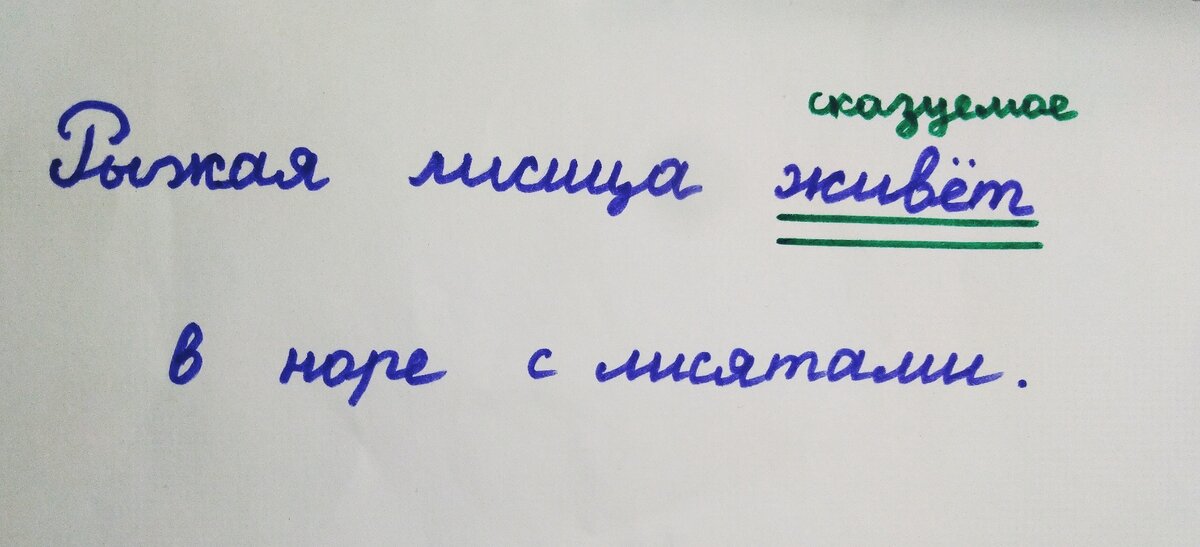 сказуемое
Рыжая лисица живёт
в норе с лисятами.